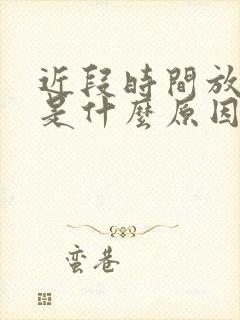 近段時間放
是什麼原因
蛮巷